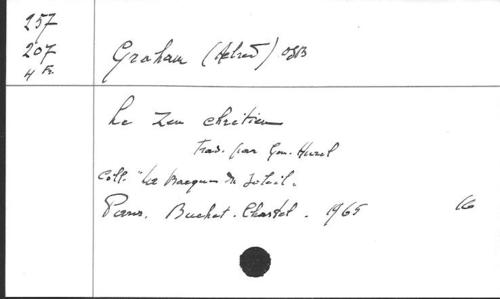 257
207
4 Fr.
Graham (Aelred) OSB
Le Zen chrétien
Trad. par
Coll. "La Barque du Soleil".
Paris. Buchet-Chastel. 1965 16